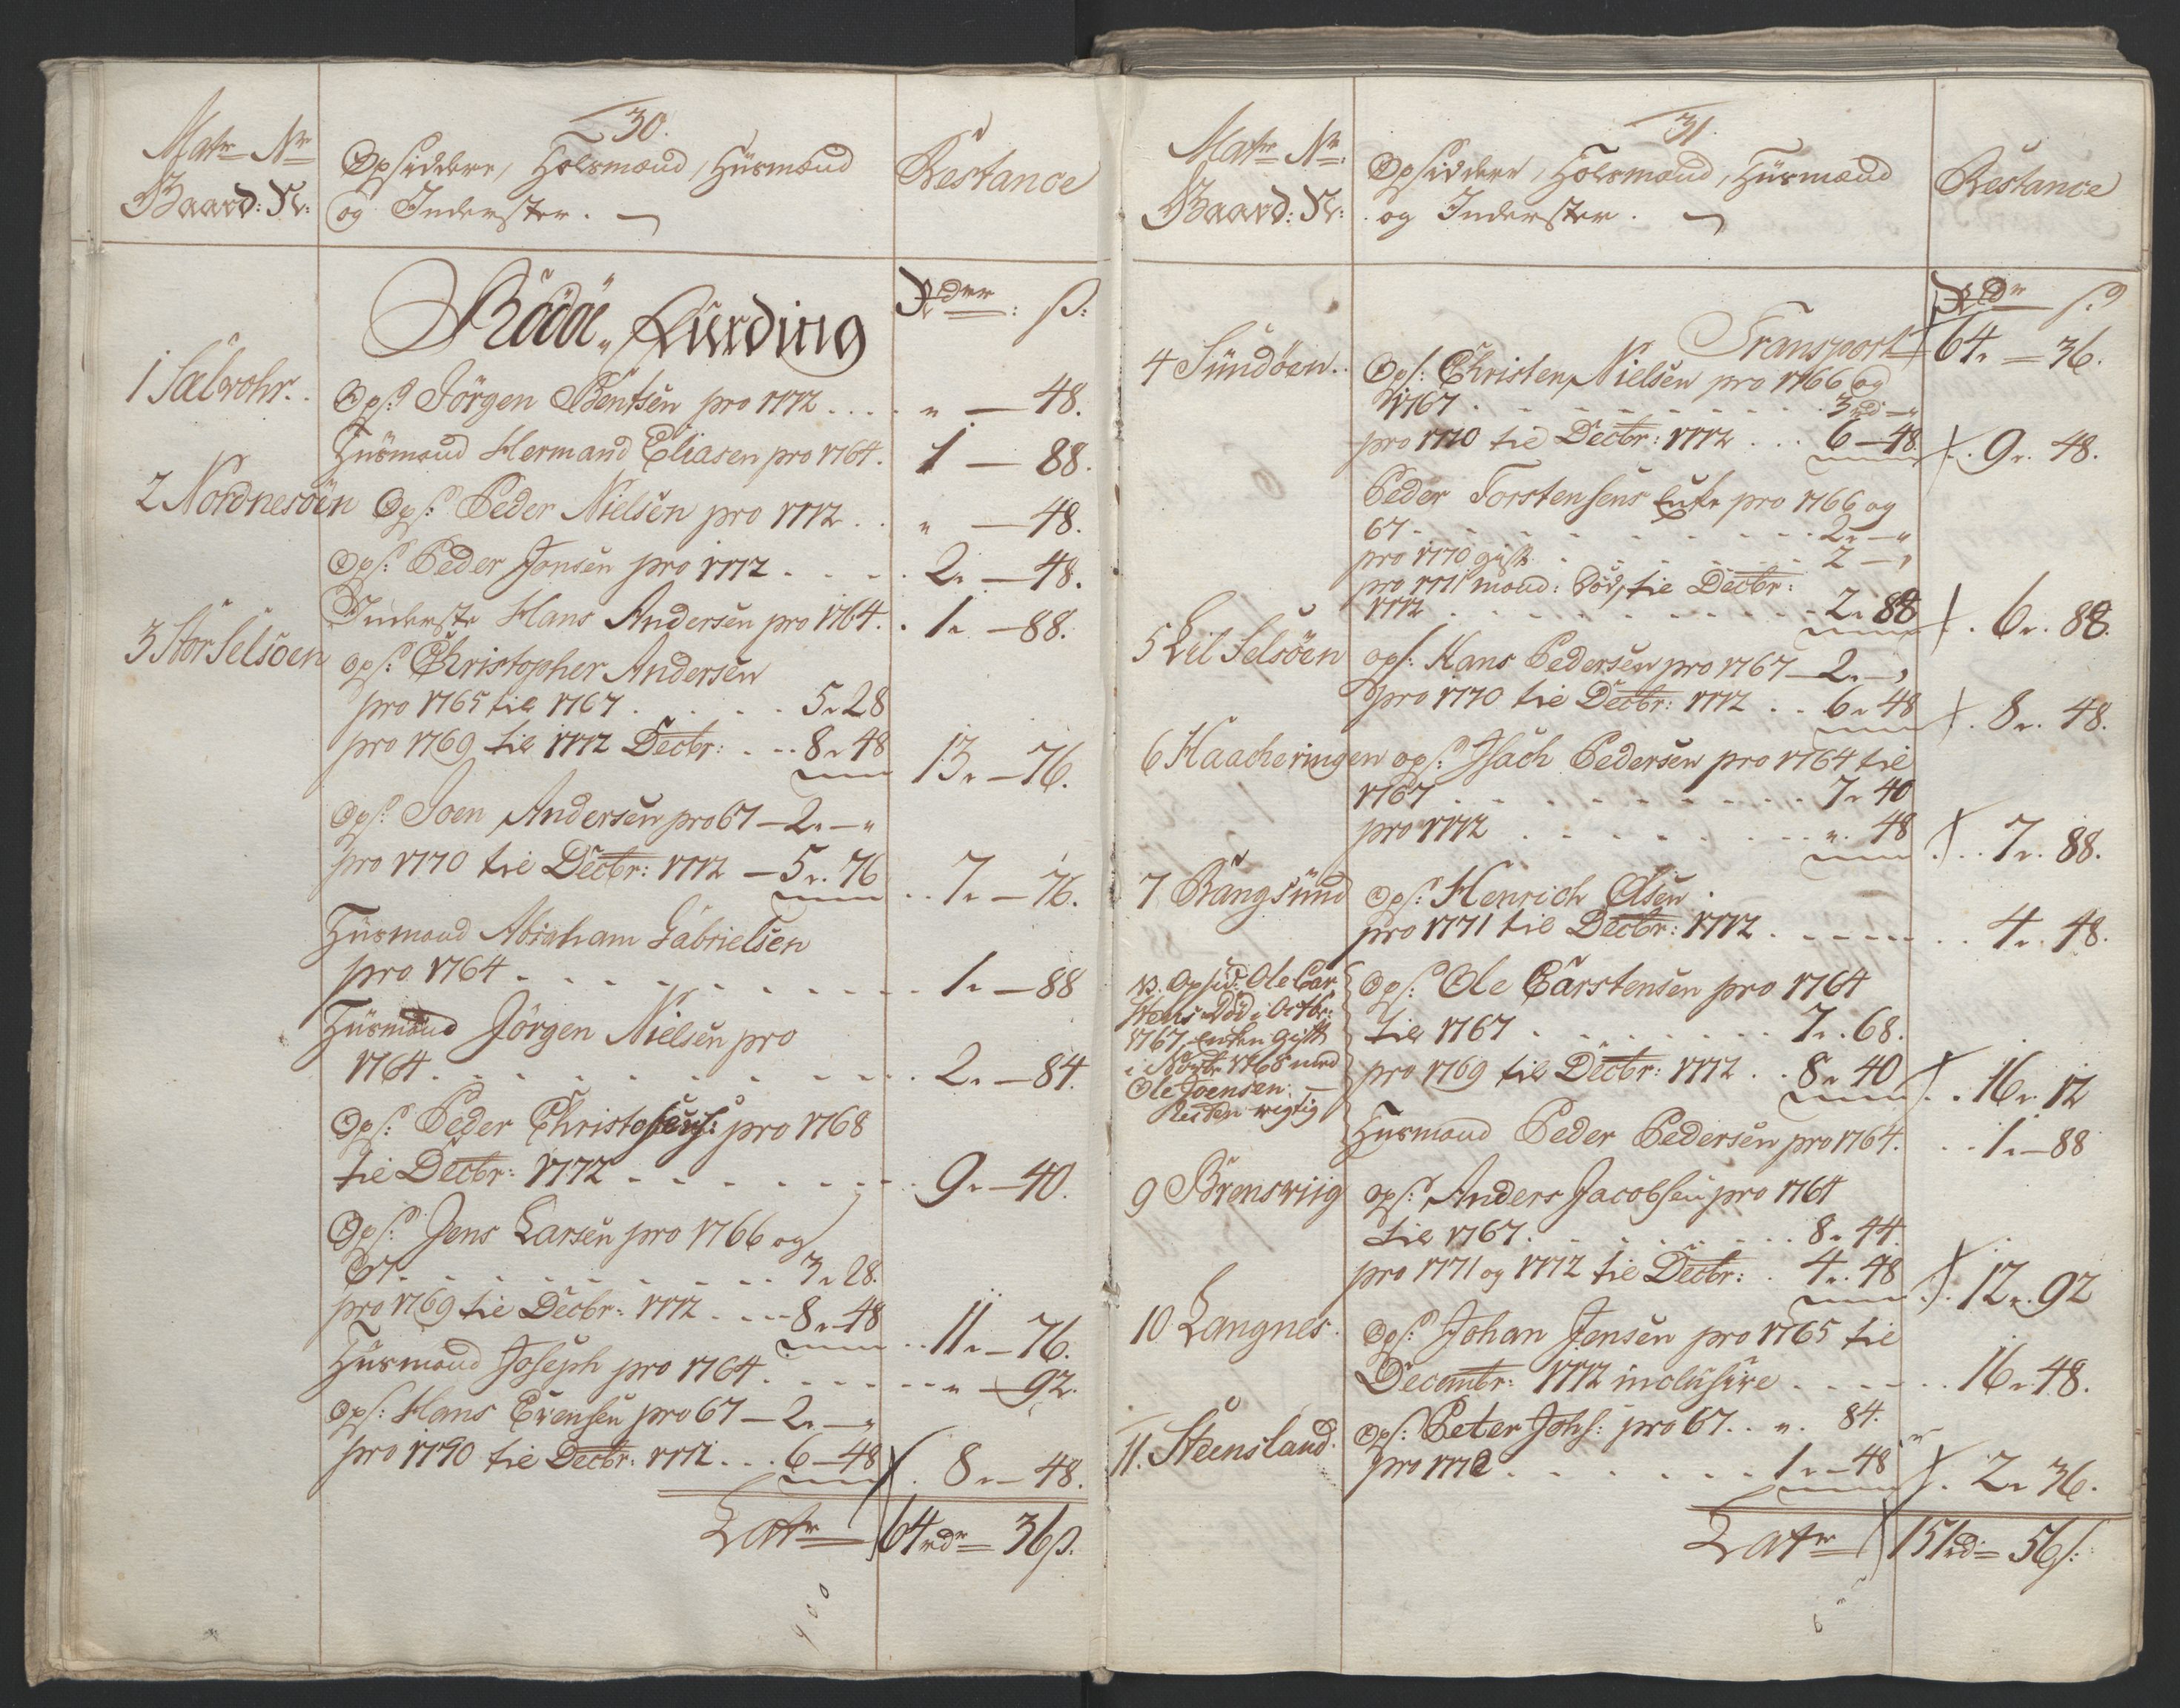 30.
Matr Nr
Gaard: N:
Opsiddere, Holsmænd, Huusmænd
og Inderster.
Restance
Rödöe Fierding
Rdr: s:
1 Selvohr.
Ops: Jörgen Bentsen pro 1772 .... " — 48.
Huusmand Hermand Eliasen pro 1764. 1 — 88.
2 Nordnesöen Ops: Peder Nielsen pro 1772 .. " — 48.
Ops: Peder Jonsen pro 1772 .... 2 — 48.
Inderste Hans Andersen pro 1764. . 1 — 88.
3 Stor Selsöen ops: Christopher Andersen
pro 1765 til 1767 ..... 5 " 28
pro 1769 til 1772 Decbr: ... 8 " 48 13 — 76.
Ops: Joen Andersen pro 67 — 2 " — "
pro 1770 til Decbr: 1772 — 5 " 76 .. 7 — 76.
Huusmand Abraham Gabrielsen
pro 1764 ......... 1 — 88
Huusmand Jörgen Nielsen pro
1764 ......... 2 — 84.
Ops: Peder pro 1768
til Decbr: 1772 ....... 9 — 40.
Ops: Jens Larsen pro 1766 og
67 ......... 3 " 28.
pro 1769 til Decbr: 1772 .... 8 " 48 .. 11 — 76.
Huusmand Joseph pro 1764 ...... " — 92.
Ops: Hans Evensen pro 67 — 2 " — "
pro 1770 til Decbr: 1772 ... 6 — 48 . 8 — 48.
Latr 64 rdr 36 s.
31.
Matr Nr:
Gaard: N:
Opsiddere, Holsmænd, Huusmænd
og Inderster.
Restance
Rdr s:
Transport 64 — 36.
4 Sundöen.. Ops: Christen Nielsen pro 1766 og
1767 ......... 3 rd — "
pro 1770 til Decbr: 1772 ... 6 — 48 . 9 " 48.
Peder Torstensens Enke pro 1766 og
67 ......... 2 " — "
pro 1770 gift ....... 2 — "
pro 1771 mand: död, til Decbr:
1772 ......... 2 " 88 . 6 " 88.
5 Lil Selsöen ops: Hans Pedersen pro 1767 — 2 " — "
pro 1770 til Decbr: 1772 .. 6 " 48 . 8 " 48.
6 Haacheringen ops: Isach Pedersen pro 1764 til
1767 ......... 7 " 40
pro 1772 ......... " 48 ... 7 " 88.
7 Rangsund ops: Henrich Olsen.
pro 1771 til Decbr: 1772 ....... 4 " 48.
NB. Opsid: Ole Car
stens Död i Octbr:
1767, Enken gift
i Novbr 1768 med
Ole Joensen.
Resten rigtig
Ops: Ole Carstensen pro 1764
til 1767 ........ 7 " 68.
pro 1769 til Decbr: 1772 .. 8 " 40 .. 16 " 12
Huusmand Peder Pedersen pro 1764. .. 1 — 88
9 Brensviig ops: Anders Jacobsen pro 1764
til 1767 ........ 8 " 44.
pro 1771 og 1772 til Decbr: . 4 " 48 . 12 " 92
10 Langnes. Ops: Johan Jensen pro 1765 til
Decembr: 1772 inclusive ...... 16 " 48.
11. Steensland. ops: Peter Johs: pro 67 .. " 84.
pro 1772 ....... 1 " — 48 . 2 " 36.
Latr 151 rd 56 s: